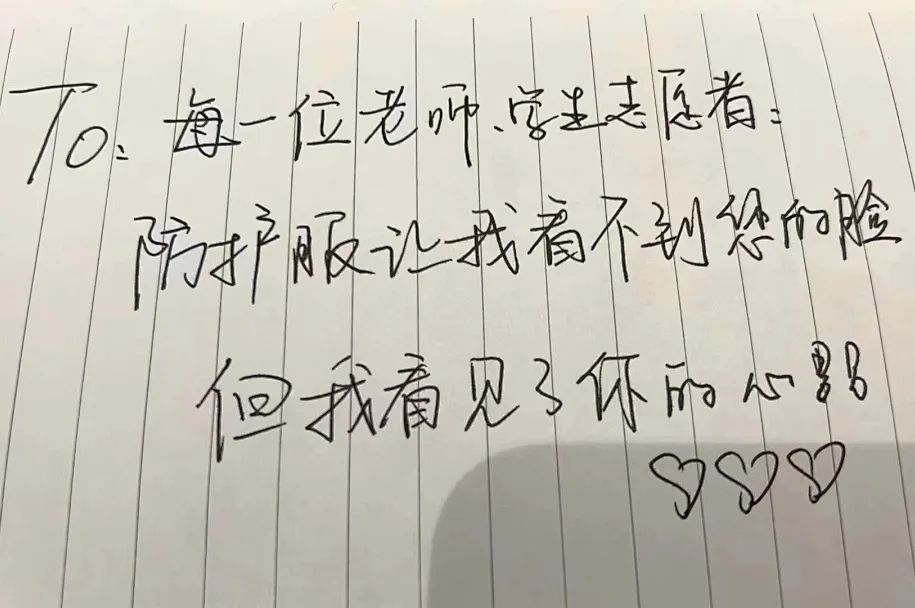 To: 每一位老师、学生志愿者:
防护服让我看不到您的脸
但我看见了你的心
♡♡♡